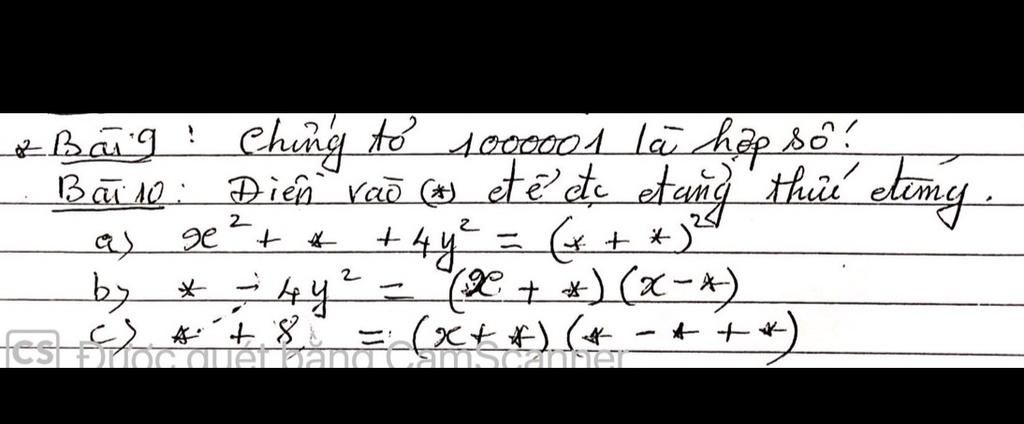 * Bài 9 : Chứng tỏ 1000001 là hợp số!
Bài 10 : Điền vào (*) để đc đẳng thức đúng.
a) x² + * + 4y² = (* + *)²
b) * - 4y² = (x + *) (x - *)
c) * + 8 = (x + *) (* - * + *)
CS Được quét bằng CamScanner